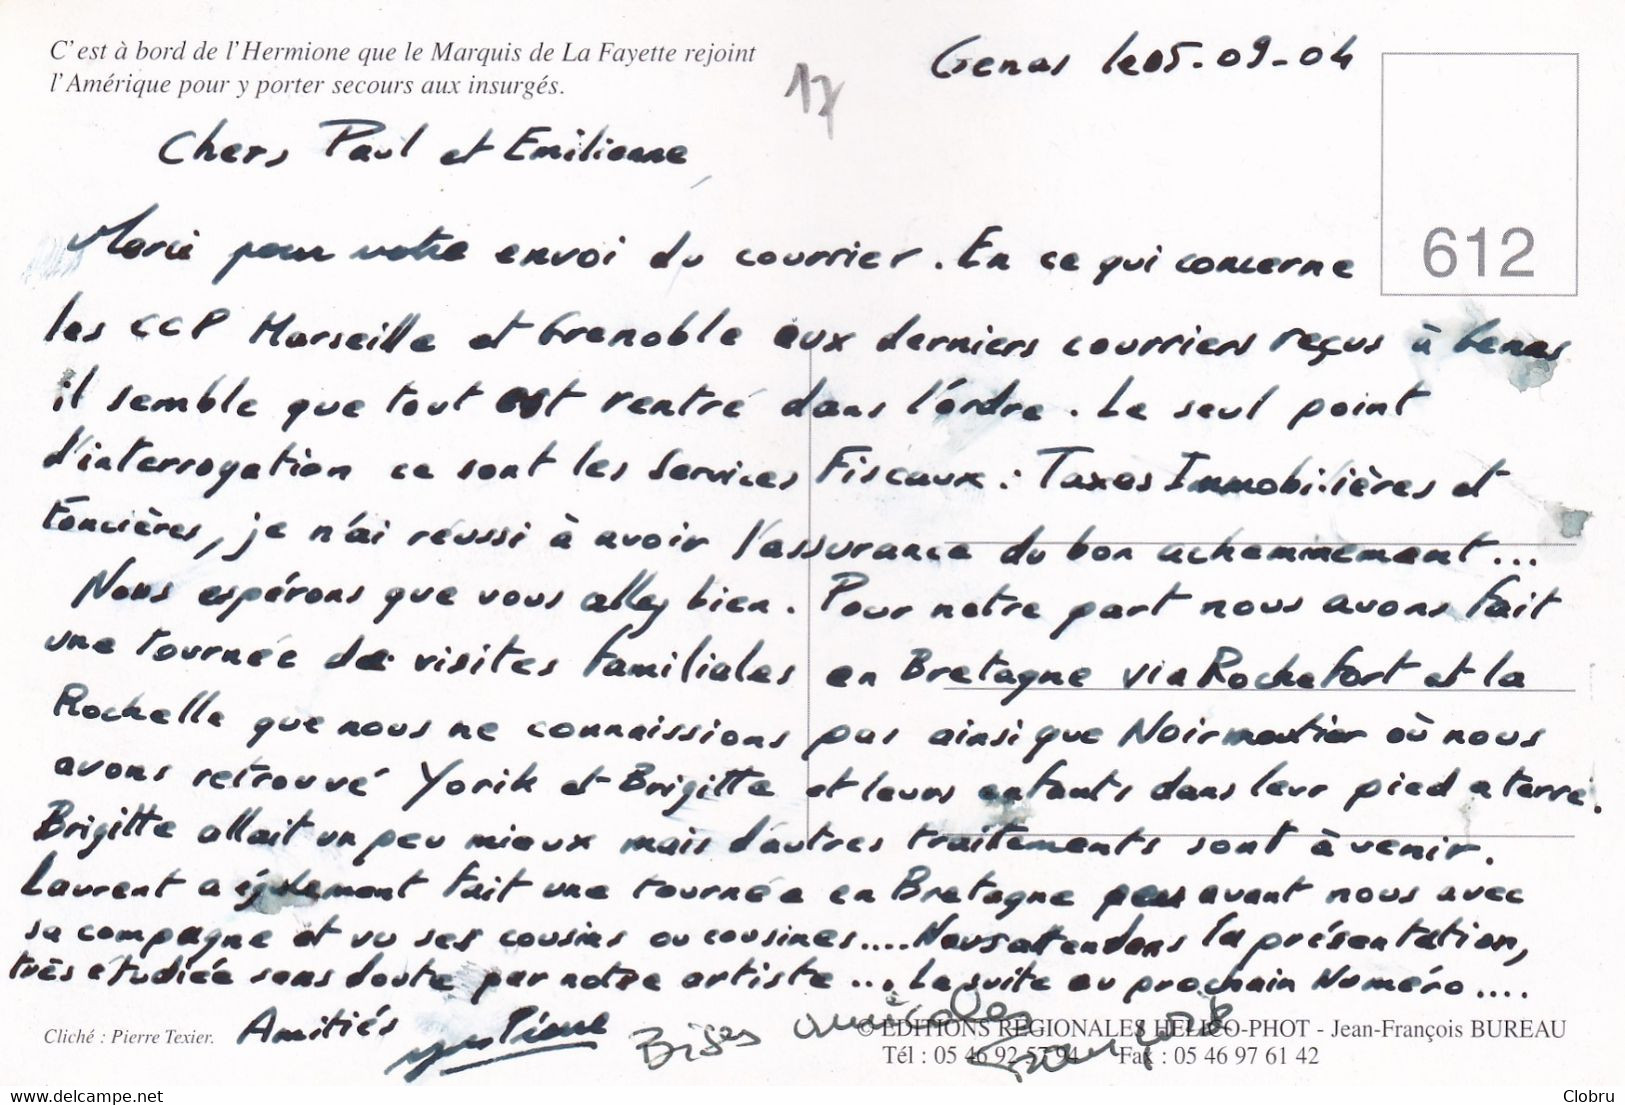 C'est à bord de l'Hermione que le Marquis de La Fayette rejoint
l'Amérique pour y porter secours aux insurgés.
17
Genas le 05-09-04
612
Chers Paul et Emilienne,
Merci pour votre envoi du courrier. En ce qui concerne
les CCP Marseille et Grenoble aux derniers courriers reçus à Genas
il semble que tout est rentré dans l'ordre. Le seul point
d'interrogation ce sont les Services Fiscaux : Taxes Immobilières et
Foncières, je n'ai réussi à avoir l'assurance du bon achemmement...
Nous espérons que vous allez bien. Pour notre part nous avons fait
une tournée de visites familiales en Bretagne via Rochefort et la
Rochelle que nous ne connaissions pas ainsi que Noirmoutier où nous
avons retrouvé Yorik et Brigitte et leurs enfants dans leur pied a terre.
Brigitte allait un peu mieux mais d'autres traitements sont à venir.
Laurent a également fait une tournée en Bretagne peu avant nous avec
sa compagne et vu ses cousins ou cousines.... Nous attendons la présentation,
très étudiée sans doute par notre artiste ... La suite au prochain Numéro....
Amitiés
Bises amicales
Françoise
Cliché : Pierre Texier.
© EDITIONS REGIONALES HELICO-PHOT - Jean-François BUREAU
Tél : 05 46 92 57 94 Fax : 05 46 97 61 42
www.delcampe.net
Clobru